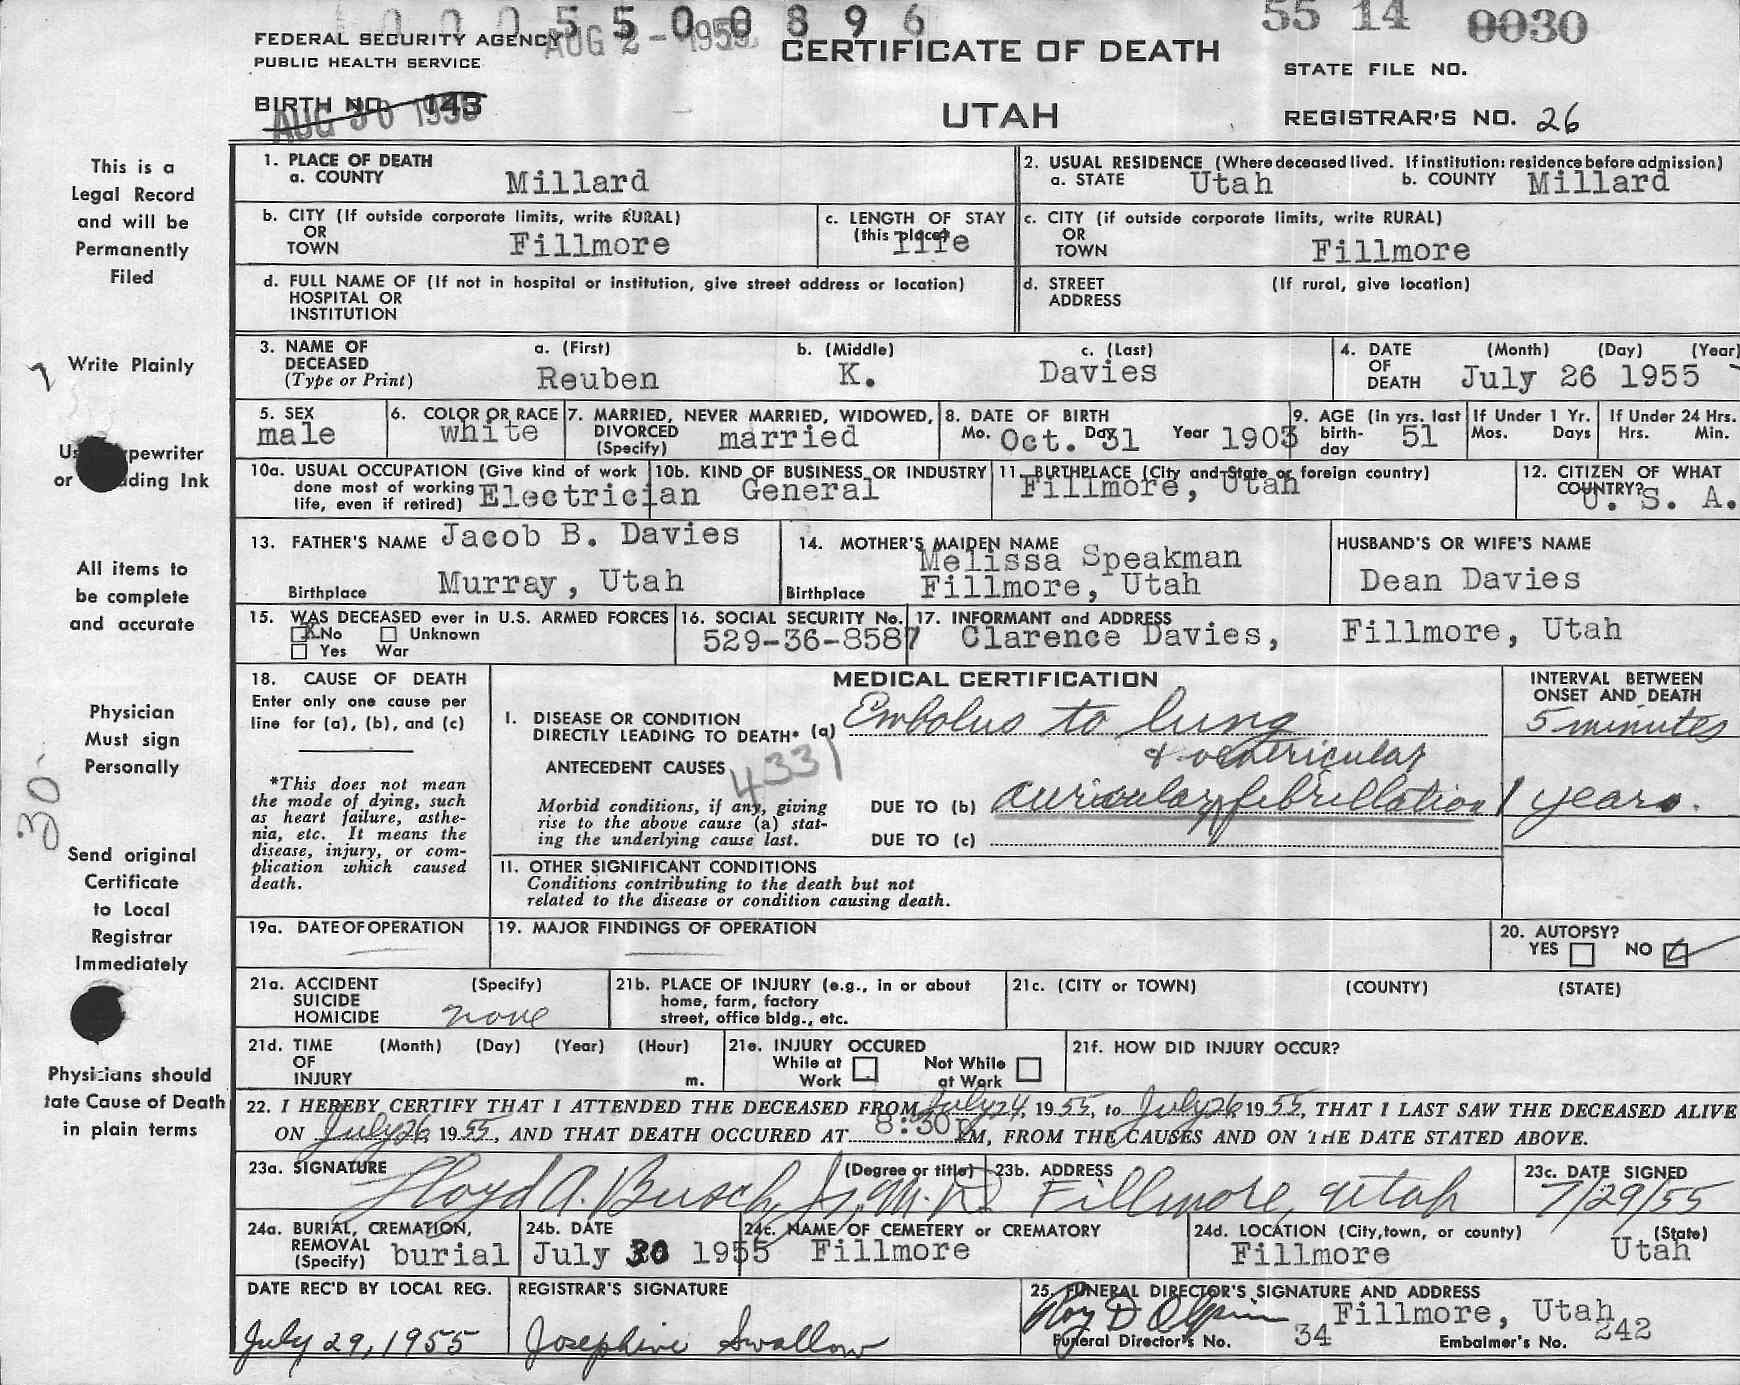 0 0 0 5 5 0 0 8 9 6
55 14 0030
FEDERAL SECURITY AGENCY
PUBLIC HEALTH SERVICE
AUG 2 - 1955
CERTIFICATE OF DEATH
STATE FILE NO.
BIRTH NO. 143
AUG 30 1955
UTAH
REGISTRAR'S NO. 26
This is a
Legal Record
and will be
Permanently
Filed
Write Plainly
or
All items to
be complete
and accurate
Physician
Must sign
Personally
30-
Send original
Certificate
to Local
Registrar
Immediately
Physicians should
tate Cause of Death
in plain terms
1. PLACE OF DEATH
a. COUNTY Millard
2. USUAL RESIDENCE (Where deceased lived. If institution: residence before admission)
a. STATE Utah b. COUNTY Millard
b. CITY (If outside corporate limits, write RURAL)
OR
TOWN Fillmore
c. LENGTH OF STAY
(this place) life
c. CITY (if outside corporate limits, write RURAL)
OR
TOWN Fillmore
d. FULL NAME OF (If not in hospital or institution, give street address or location)
HOSPITAL OR
INSTITUTION
d. STREET (If rural, give location)
ADDRESS
3. NAME OF DECEASED (Type or Print)
a. (First) b. (Middle) c. (Last)
Reuben K. Davies
4. DATE OF DEATH (Month) (Day) (Year)
July 26 1955
5. SEX
male
6. COLOR OR RACE
white
7. MARRIED, NEVER MARRIED, WIDOWED,
DIVORCED (Specify) married
8. DATE OF BIRTH
Mo. Oct. Day 31 Year 1903
9. AGE (in yrs. last birth-day 51
If Under 1 Yr.
Mos. Days
If Under 24 Hrs.
Hrs. Min.
10a. USUAL OCCUPATION (Give kind of work
done most of working
life, even if retired) Electrician
10b. KIND OF BUSINESS OR INDUSTRY
General
11. BIRTHPLACE (City and State or foreign country)
Fillmore, Utah
12. CITIZEN OF WHAT
COUNTRY? U. S. A.
13. FATHER'S NAME Jacob B. Davies
Birthplace Murray, Utah
14. MOTHER'S MAIDEN NAME
Melissa Speakman
Birthplace Fillmore, Utah
HUSBAND'S OR WIFE'S NAME
Dean Davies
15. WAS DECEASED ever in U.S. ARMED FORCES
X No Unknown
Yes War
16. SOCIAL SECURITY No.
529-36-8587
17. INFORMANT and ADDRESS
Clarence Davies, Fillmore, Utah
18. CAUSE OF DEATH
Enter only one cause per
line for (a), (b), and (c)
*This does not mean
the mode of dying, such
as heart failure, asthe-
nia, etc. It means the
disease, injury, or com-
plication which caused
death.
MEDICAL CERTIFICATION
INTERVAL BETWEEN
ONSET AND DEATH
I. DISEASE OR CONDITION
DIRECTLY LEADING TO DEATH* (a) Embolus to lung 5 minutes
ANTECEDENT CAUSES 4331
& ventricular
Morbid conditions, if any, giving
rise to the above cause (a) stat-
ing the underlying cause last.
DUE TO (b) auricular fibrillation 1 year.
DUE TO (c)
11. OTHER SIGNIFICANT CONDITIONS
Conditions contributing to the death but not
related to the disease or condition causing death.
19a. DATE OF OPERATION
19. MAJOR FINDINGS OF OPERATION
20. AUTOPSY?
YES NO
21a. ACCIDENT (Specify)
SUICIDE
HOMICIDE none
21b. PLACE OF INJURY (e.g., in or about
home, farm, factory
street, office bldg., etc.
21c. (CITY or TOWN) (COUNTY) (STATE)
21d. TIME (Month) (Day) (Year) (Hour)
OF
INJURY m.
21e. INJURY OCCURED
While at Work Not While at Work
21f. HOW DID INJURY OCCUR?
22. I HEREBY CERTIFY THAT I ATTENDED THE DECEASED FROM July 24, 1955, to July 26 1955, THAT I LAST SAW THE DECEASED ALIVE
ON July 26, 1955, AND THAT DEATH OCCURED AT 8:30 PM, FROM THE CAUSES AND ON THE DATE STATED ABOVE.
23a. SIGNATURE (Degree or title)
Floyd A. Busch, Jr, M.D.
23b. ADDRESS
Fillmore, Utah
23c. DATE SIGNED
7/29/55
24a. BURIAL, CREMATION,
REMOVAL
(Specify) burial
24b. DATE
July 30 1955
24c. NAME OF CEMETERY or CREMATORY
Fillmore
24d. LOCATION (City, town, or county) (State)
Fillmore Utah
DATE REC'D BY LOCAL REG.
July 29, 1955
REGISTRAR'S SIGNATURE
Josephine Swallow
25. FUNERAL DIRECTOR'S SIGNATURE AND ADDRESS
Roy D Olpin Fillmore, Utah
Funeral Director's No. 34 Embalmer's No. 242